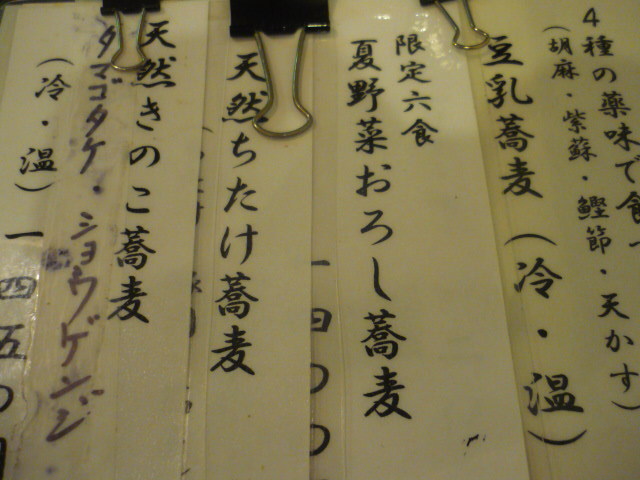 4種の薬味で食
(胡麻・紫蘇・鰹節・天かす)
豆乳蕎麦(冷・温)
限定六食
夏野菜おろし蕎麦
一四〇〇
天然ちたけ蕎麦
天然きのこ蕎麦
タマゴタケ・ショウゲンジ
(冷・温)一四五〇円